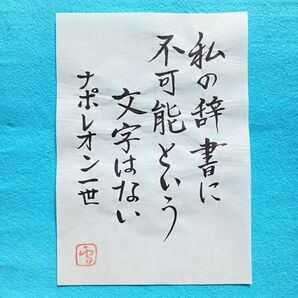 私の辞書に
不可能という
文字はない
ナポレオン一世
雪